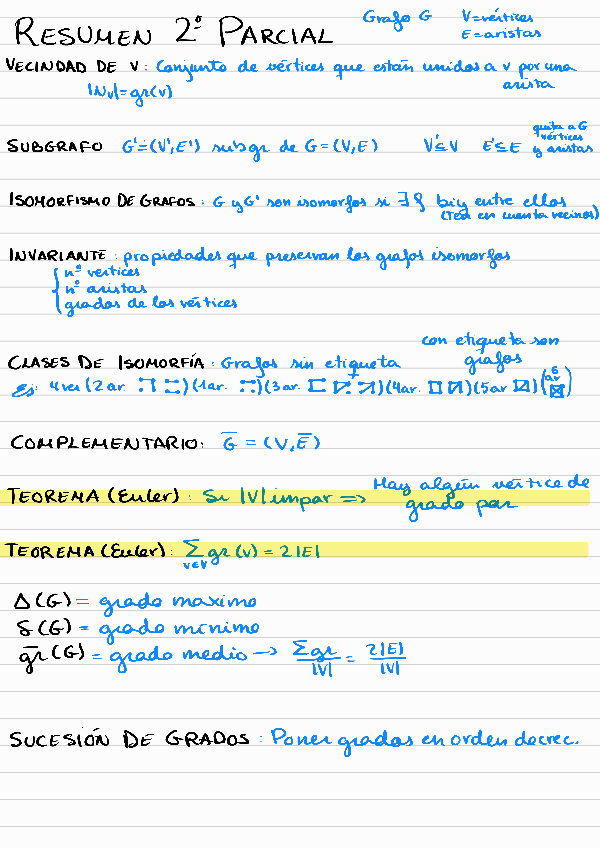 RESUMEN 2º PARCIAL
Grafo G V=vértices
E=aristas
VECINDAD DE V: Conjunto de vértices que están unidos a v por una
arista
|Nv|=gr(v)
quita a G
vértices
y aristas
SUBGRAFO G'=(V',E') subgr de G=(V,E) V'⊆V E'⊆E
ISOMORFISMO DE GRAFOS: G y G' son isomorfos si ∃ f biy entre ellos
(Ten en cuenta vecinos)
INVARIANTE: propiedades que preservan los grafos isomorfos
nº vértices
nº aristas
grados de los vértices
con etiqueta son
grafos
CLASES DE ISOMORFÍA: Grafos sin etiqueta
Ej: 4 ver (2 ar. ) (1 ar. ) (3 ar. ) (4 ar. ) (5 ar ) (6 ar )
COMPLEMENTARIO: G̅ = (V, E̅)
TEOREMA (Euler): Si |V| impar => Hay algún vértice de
grado par
TEOREMA (Euler): Σ gr(v) = 2|E|
v∈V
Δ(G) = grado maximo
δ(G) = grado mínimo
g̅r̅(G) = grado medio → Σgr/|V| = 2|E|/|V|
SUCESIÓN DE GRADOS: Poner grados en orden decrec.